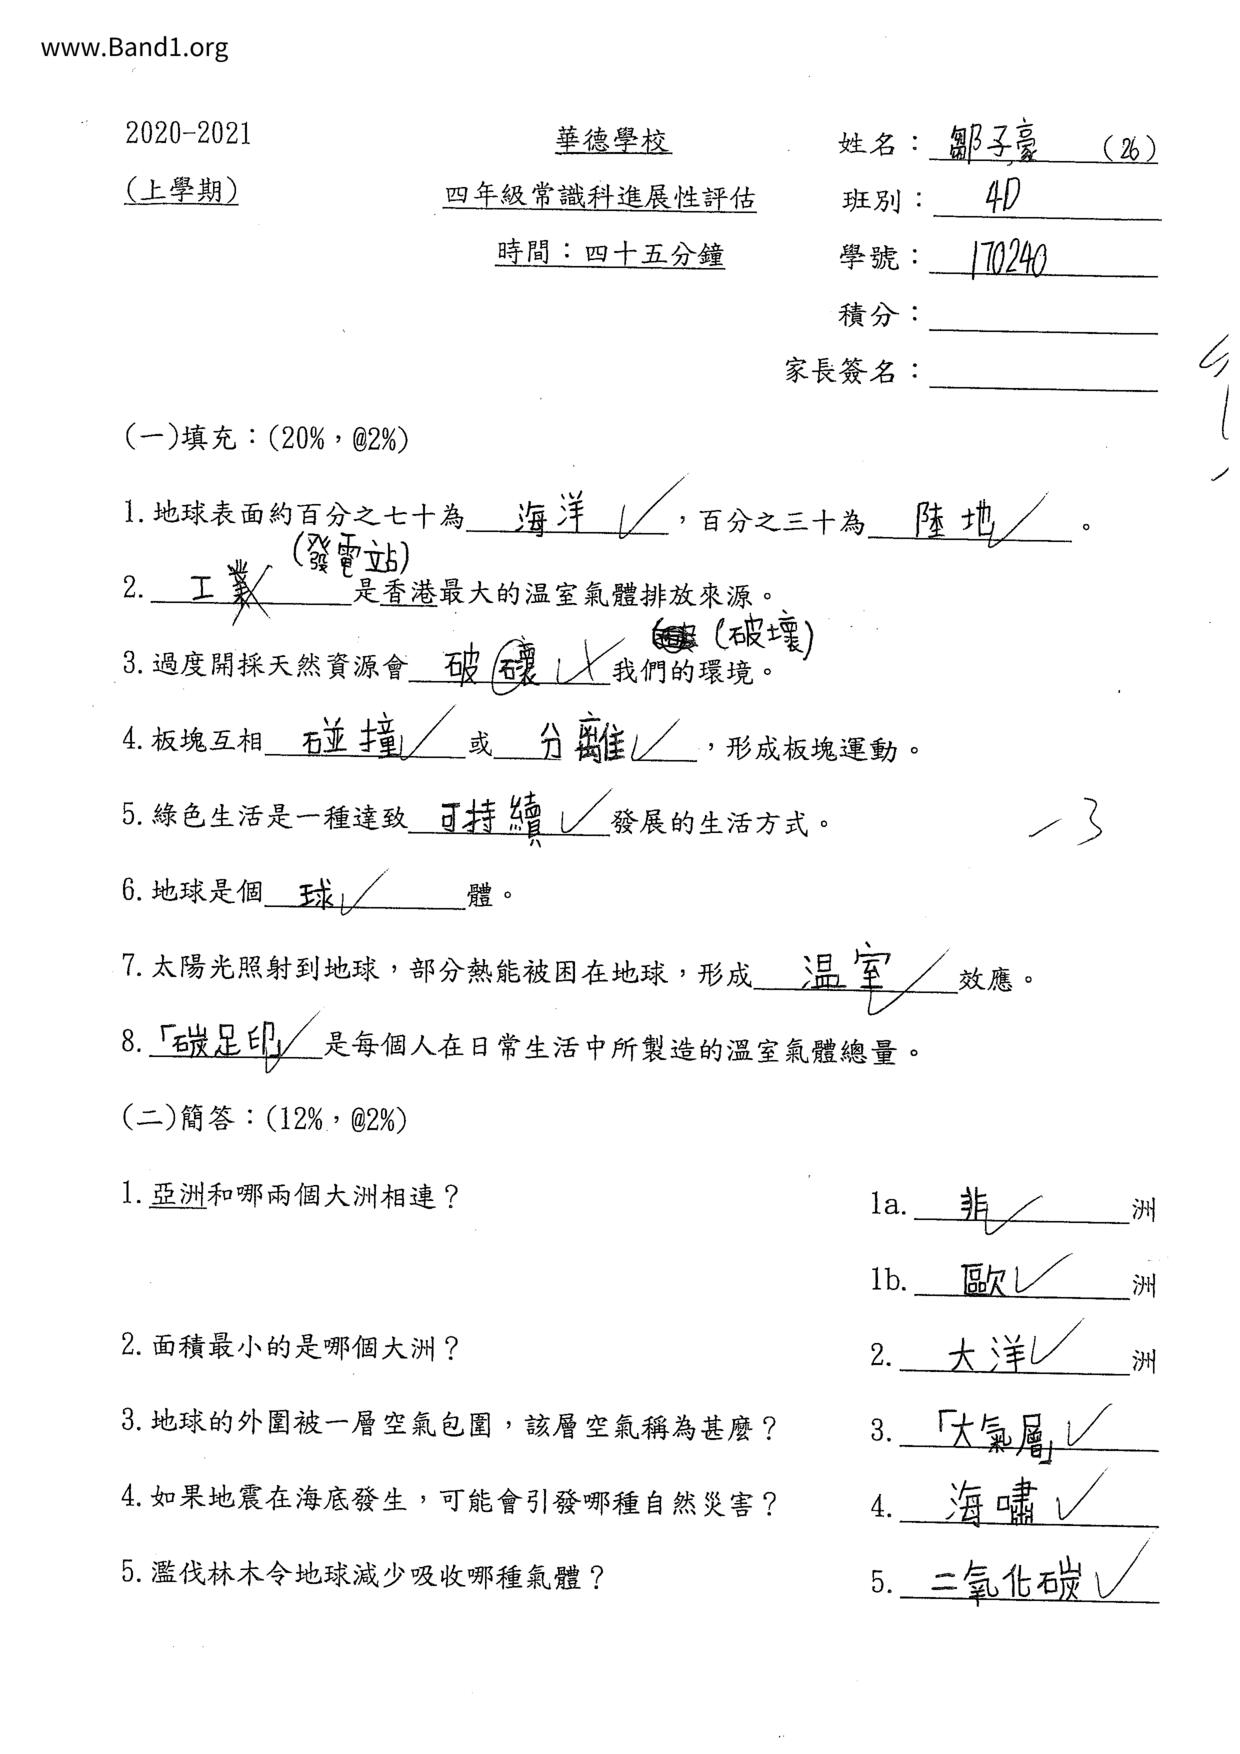 www.Band1.org
2020-2021 華德學校 姓名：鄒子豪 (26)
(上學期) 四年級常識科進展性評估 班別：4D
時間：四十五分鐘 學號：170240
積分：
家長簽名：
(一)填充：(20%，@2%)
1. 地球表面約百分之七十為 海洋 ，百分之三十為 陸地 。
(發電站)
2. 工業 是香港最大的温室氣體排放來源。
(破壞)
3. 過度開採天然資源會 破 我們的環境。
4. 板塊互相 碰撞 或 分離 ，形成板塊運動。
5. 綠色生活是一種達致 可持續 發展的生活方式。
-3
6. 地球是個 球 體。
7. 太陽光照射到地球，部分熱能被困在地球，形成 温室 效應。
8. 「碳足印」 是每個人在日常生活中所製造的溫室氣體總量。
(二)簡答：(12%，@2%)
1. 亞洲和哪兩個大洲相連？ 1a. 非 洲
1b. 歐 洲
2. 面積最小的是哪個大洲？ 2. 大洋 洲
3. 地球的外圍被一層空氣包圍，該層空氣稱為甚麼？ 3. 「大氣層」
4. 如果地震在海底發生，可能會引發哪種自然災害？ 4. 海嘯
5. 濫伐林木令地球減少吸收哪種氣體？ 5. 二氧化碳